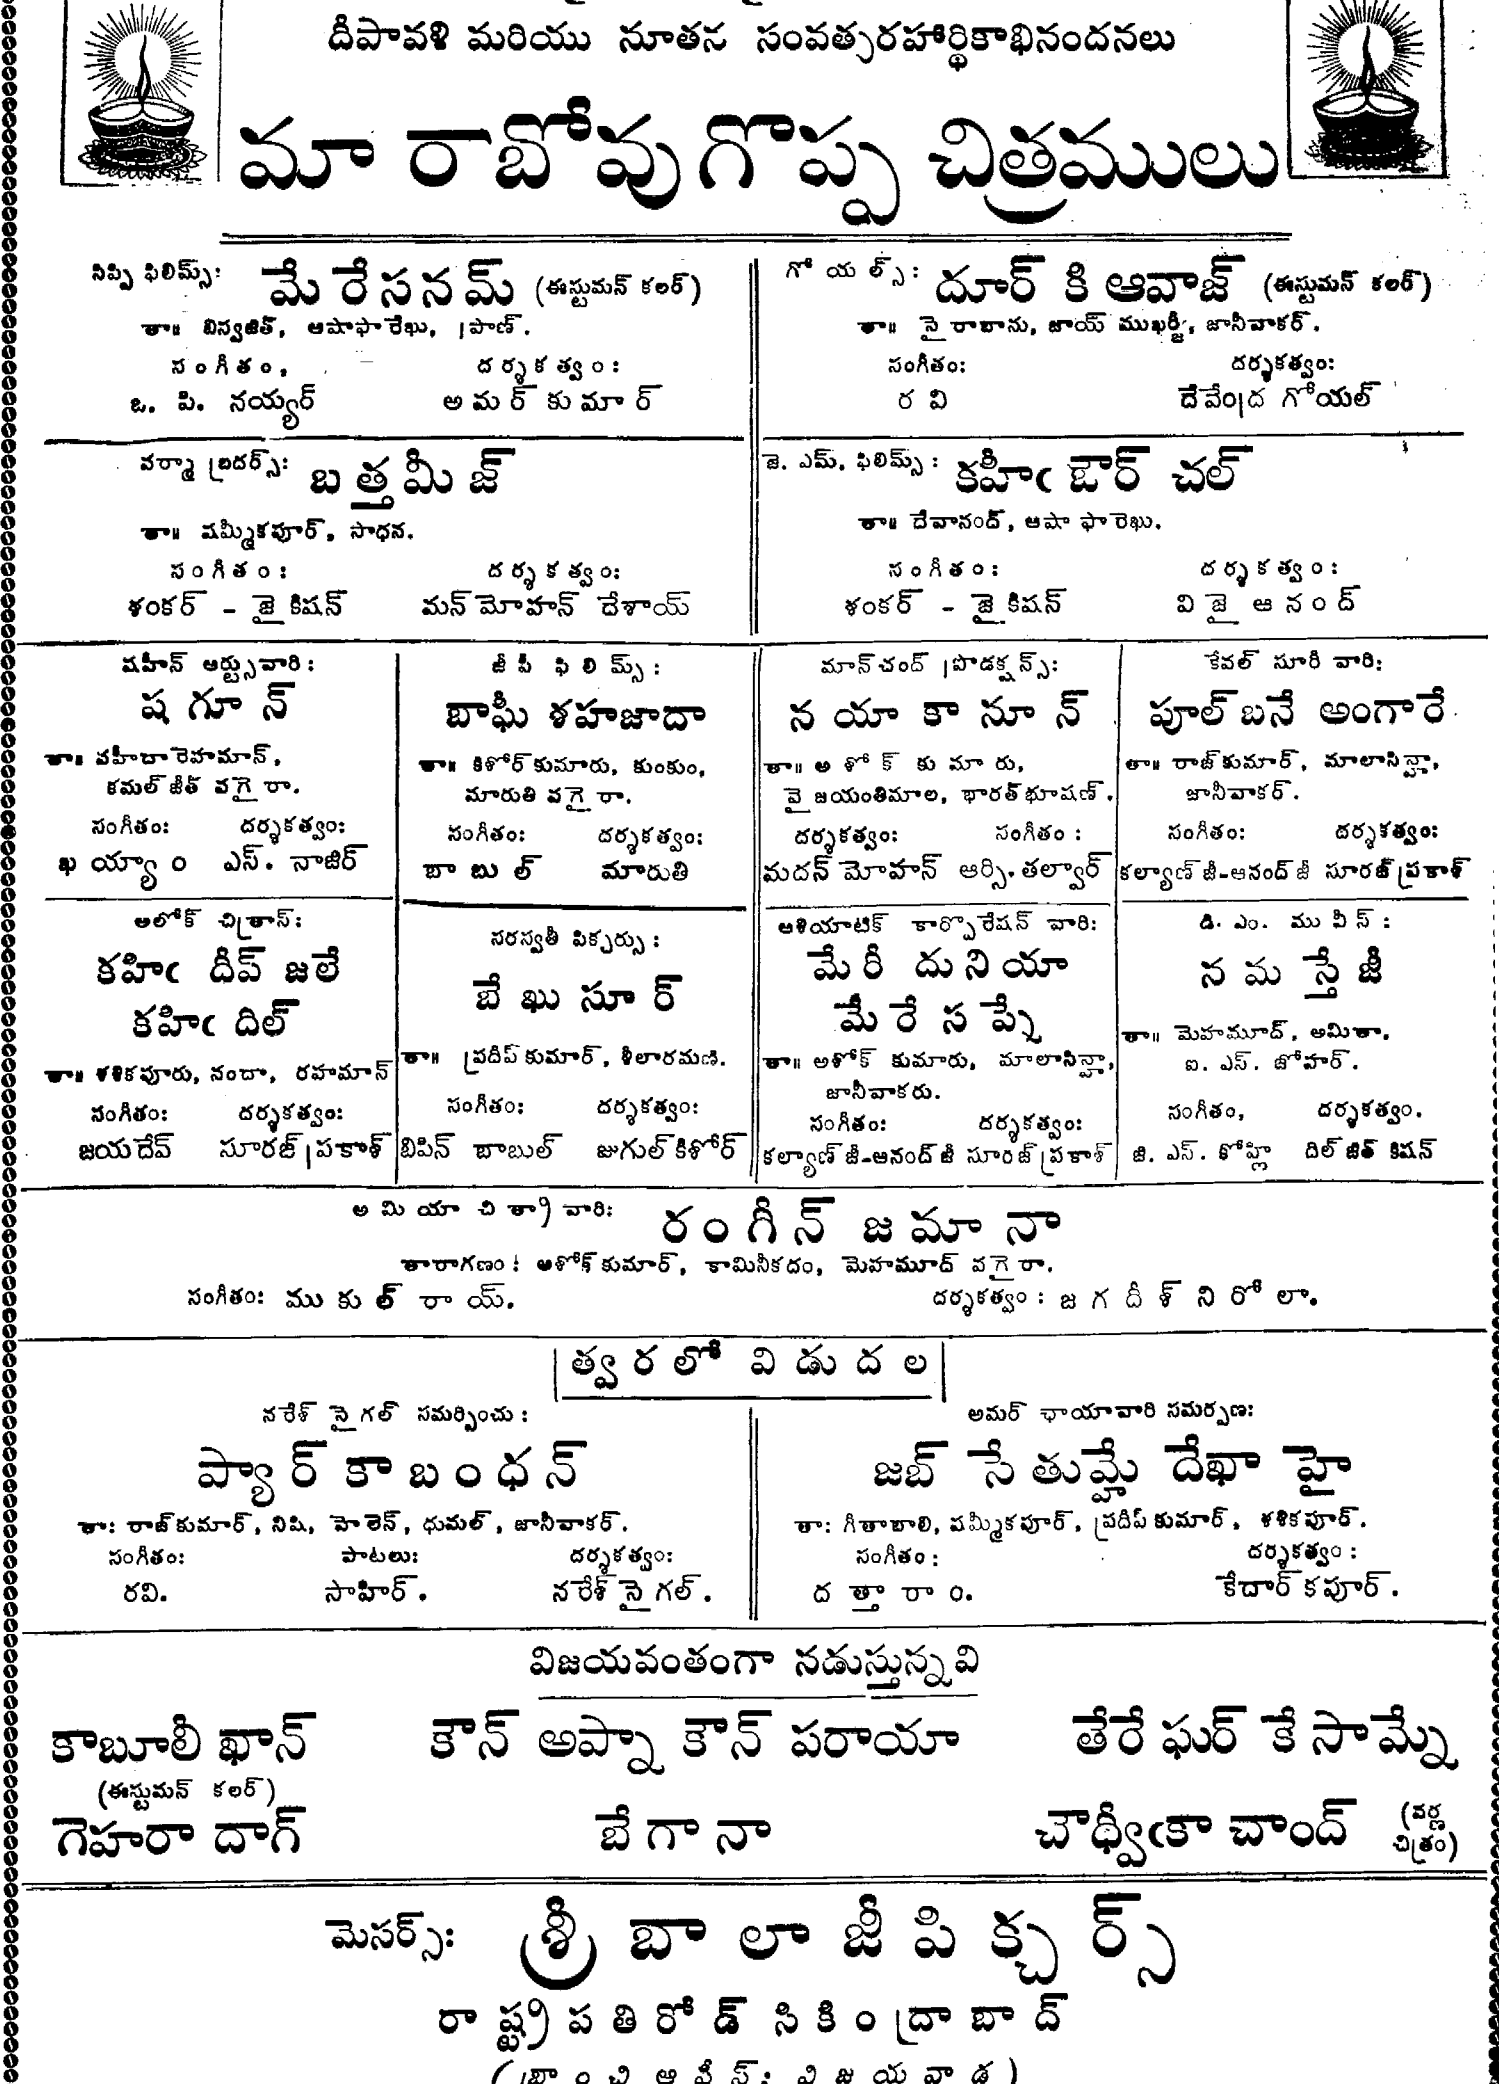 దీపావళి మరియు నూతన సంవత్సరహార్థికాభినందనలు
మా రాబోవు గొప్ప చిత్రములు
సిప్పి ఫిలిమ్స్: మేరేసనమ్ (ఈస్టుమన్ కలర్)
తా॥ బిస్వజిత్, ఆషాఫారేఖు, ప్రాణ్.
సంగీతం, దర్శకత్వం:
ఒ. పి. నయ్యర్ అమర్ కుమార్
గోయల్స్: దూర్ కి ఆవాజ్ (ఈస్టుమన్ కలర్)
తా॥ సైరాబాను, జాయ్ ముఖర్జీ, జానీవాకర్.
సంగీతం: దర్శకత్వం:
రవి దేవేంద్ర గోయల్
వర్మా బ్రదర్స్: బత్తమీజ్
తా॥ షమ్మీకపూర్, సాధన.
సంగీతం: దర్శకత్వం:
శంకర్ - జైకిషన్ మన్ మోహన్ దేశాయ్
జె. ఎమ్. ఫిలిమ్స్: కహీఁ ఔర్ చల్
తా॥ దేవానంద్, ఆషా ఫారెఖు.
సంగీతం: దర్శకత్వం:
శంకర్ - జైకిషన్ విజై ఆనంద్
షహీన్ ఆర్ట్సువారి:
షగూన్
తా॥ వహీదారెహమాన్,
కమల్ జీత్ వగైరా.
సంగీతం: దర్శకత్వం:
ఖయ్యాం ఎస్. నాజిర్
జీపీ ఫిలిమ్స్:
బాఘీ శహజాదా
తా॥ కిశోర్ కుమారు, కుంకుం,
మారుతి వగైరా.
సంగీతం: దర్శకత్వం:
బాబుల్ మారుతి
మాన్ చంద్ ప్రొడక్షన్స్:
నయా కానూన్
తా॥ అశోక్ కుమారు,
వైజయంతిమాల, భారత్ భూషణ్.
దర్శకత్వం: సంగీతం:
మదన్ మోహన్ ఆర్సి. తల్వార్
కేవల్ సూరీ వారి:
పూల్ బనే అంగారే
తా॥ రాజ్ కుమార్, మాలాసిన్హా,
జానీవాకర్.
సంగీతం: దర్శకత్వం:
కల్యాణ్ జీ-ఆనంద్ జీ సూరజ్ ప్రకాశ్
ఆలోక్ చిత్రాస్:
కహిఁ దీప్ జలే
కహిఁ దిల్
తా॥ శశికపూరు, నందా, రహమాన్
సంగీతం: దర్శకత్వం:
జయదేవ్ సూరజ్ ప్రకాశ్
సరస్వతీ పిక్చర్సు:
బేఖుసూర్
తా॥ ప్రదీప్ కుమార్, శీలారమణి.
సంగీతం: దర్శకత్వం:
బిపిన్ బాబుల్ జుగుల్ కిశోర్
ఆశియాటిక్ కార్పొరేషన్ వారి:
మేరీ దునియా
మేరే సప్నే
తా॥ అశోక్ కుమారు, మాలాసిన్హా,
జానీవాకరు.
సంగీతం: దర్శకత్వం:
కల్యాణ్ జీ-ఆనంద్ జీ సూరజ్ ప్రకాశ్
డి. ఎం. మువీస్:
నమస్తేజీ
తా॥ మెహమూద్, అమితా,
ఐ. ఎస్. జోహర్.
సంగీతం, దర్శకత్వం.
జి. ఎస్. కోహ్లి దిల్ జిత్ కిషన్
అమియా చిత్రా వారి: రంగీన్ జమానా
తారాగణం: అశోక్ కుమార్, కామినీకదం, మెహమూద్ వగైరా.
సంగీతం: ముకుల్ రాయ్. దర్శకత్వం: జగదీశ్ నిరోలా.
త్వరలో విడుదల
నరేశ్ సైగల్ సమర్పించు:
ప్యార్ కా బంధన్
తా: రాజ్ కుమార్, నిషి, హెలెన్, ధుమల్, జానీవాకర్.
సంగీతం: పాటలు: దర్శకత్వం:
రవి. సాహిర్. నరేశ్ సైగల్.
అమర్ ఛాయావారి సమర్పణ:
జబ్ సే తుమ్హే దేఖా హై
తా: గీతాబాలి, షమ్మీకపూర్, ప్రదీప్ కుమార్, శశికపూర్.
సంగీతం: దర్శకత్వం:
దత్తారాం. కేదార్ కపూర్.
విజయవంతంగా నడుస్తున్నవి
కాబూలీ ఖాన్ కౌన్ అప్నా కౌన్ పరాయా తేరే ఘర్ కే సామ్నే
(ఈస్టుమన్ కలర్)
గెహరా దాగ్ బేగానా చౌథ్వీఁకా చాంద్ (వర్ణ చిత్రం)
మెసర్స్: శ్రీ బాలాజీ పిక్చర్స్
రాష్ట్రపతిరోడ్ సికింద్రాబాద్
(బ్రాంచి ఆఫీస్: విజయవాడ)